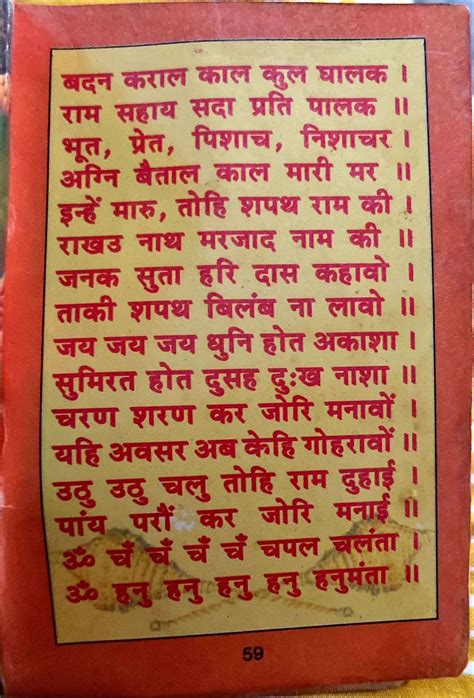 बदन कराल काल कुल घालक ।
राम सहाय सदा प्रति पालक ॥
भूत, प्रेत, पिशाच, निशाचर ।
अग्नि बैताल काल मारी मर ॥
इन्हें मारु, तोहि शपथ राम की ।
राखउ नाथ मरजाद नाम की ॥
जनक सुता हरि दास कहावो ।
ताकी शपथ बिलंब ना लावो ॥
जय जय जय धुनि होत अकाशा ।
सुमिरत होत दुसह दुःख नाशा ॥
चरण शरण कर जोरि मनावों ।
यहि अवसर अब केहि गोहरावों ॥
उठु उठु चलु तोहि राम दुहाई ।
पांय परौं कर जोरि मनाई ॥
ॐ चँ चँ चँ चँ चपल चलंता ।
ॐ हनु हनु हनु हनु हनुमंता ॥
59